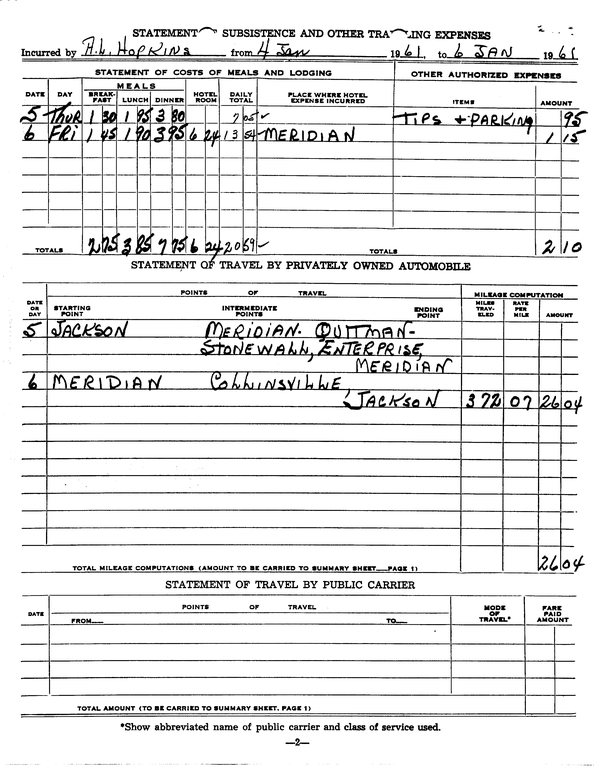 STATEMENT SUBSISTENCE AND OTHER EXPENSES
Incurred by A.L. HOPKINS from 4 Jan 1961, to 6 JAN 1961
STATEMENT OF COSTS OF MEALS AND LODGING OTHER AUTHORIZED EXPENSES
DATE DAY MEALS HOTEL ROOM DAILY TOTAL PLACE WHERE HOTEL EXPENSE INCURRED ITEMS AMOUNT
BREAK-FAST LUNCH DINNER
5 THUR 1 30 1 95 3 80 7 05 ✓ TIPS + PARKING 95
6 FRI 1 45 1 90 3 95 6 24 13 54 MERIDIAN 1 15
TOTALS 2 75 3 85 7 75 6 24 20 59 ✓ TOTALS 2 10
STATEMENT OF TRAVEL BY PRIVATELY OWNED AUTOMOBILE
POINTS OF TRAVEL MILEAGE COMPUTATION
DATE OR DAY STARTING POINT INTERMEDIATE POINTS ENDING POINT MILES TRAV-ELED RATE PER MILE AMOUNT
5 JACKSON MERIDIAN- QUITMAN-
STONEWALL, ENTERPRISE,
MERIDIAN
6 MERIDIAN COLLINSVILLE,
JACKSON 372 07 26 04
TOTAL MILEAGE COMPUTATIONS (AMOUNT TO BE CARRIED TO SUMMARY SHEET—PAGE 1) 26 04
STATEMENT OF TRAVEL BY PUBLIC CARRIER
DATE POINTS OF TRAVEL MODE OF TRAVEL* FARE PAID AMOUNT
FROM— TO—
TOTAL AMOUNT (TO BE CARRIED TO SUMMARY SHEET, PAGE 1)
*Show abbreviated name of public carrier and class of service used.
—2—